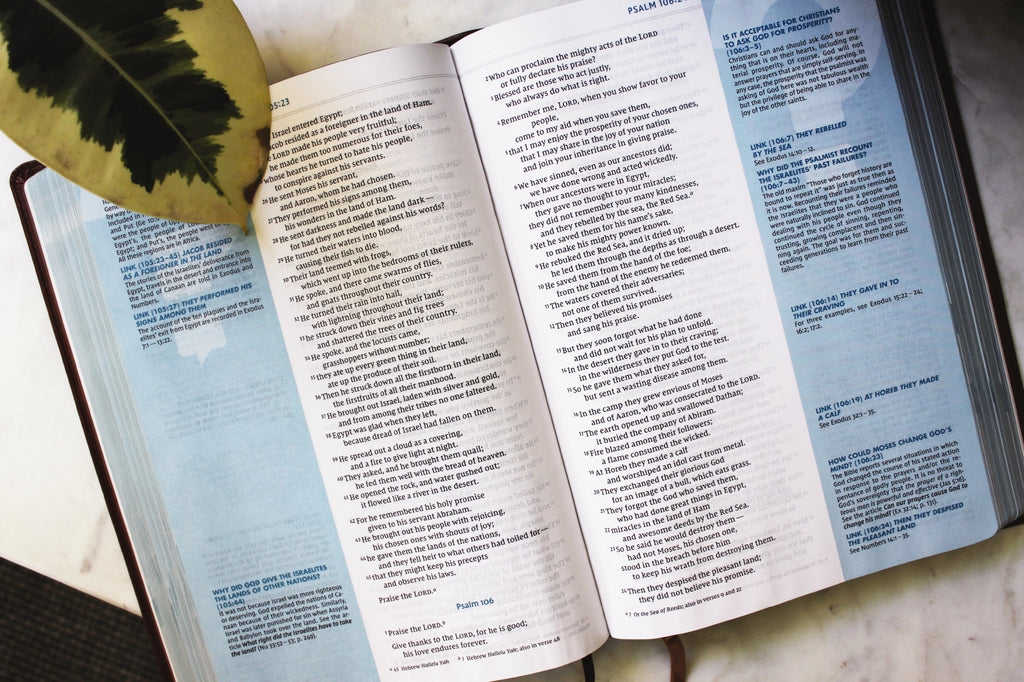 05:23
Israel entered Egypt;
resided as a foreigner in the land of Ham.
LORD made his people very fruitful;
he made them too numerous for their foes,
whose hearts he turned to hate his people,
to conspire against his servants.
26 He sent Moses his servant,
and Aaron, whom he had chosen.
27 They performed his signs among them,
his wonders in the land of Ham.
28 He sent darkness and made the land dark—
for had they not rebelled against his words?
29 He turned their waters into blood,
causing their fish to die.
30 Their land teemed with frogs,
which went up into the bedrooms of their rulers.
31 He spoke, and there came swarms of flies,
and gnats throughout their country.
32 He turned their rain into hail,
with lightning throughout their land;
33 he struck down their vines and fig trees
and shattered the trees of their country.
34 He spoke, and the locusts came,
grasshoppers without number;
35 they ate up every green thing in their land,
ate up the produce of their soil.
36 Then he struck down all the firstborn in their land,
the firstfruits of all their manhood.
37 He brought out Israel, laden with silver and gold,
and from among their tribes no one faltered.
38 Egypt was glad when they left,
because dread of Israel had fallen on them.
39 He spread out a cloud as a covering,
and a fire to give light at night.
40 They asked, and he brought them quail;
he fed them well with the bread of heaven.
41 He opened the rock, and water gushed out;
it flowed like a river in the desert.
42 For he remembered his holy promise
given to his servant Abraham.
43 He brought out his people with rejoicing,
his chosen ones with shouts of joy;
44 he gave them the lands of the nations,
and they fell heir to what others had toiled for—
45 that they might keep his precepts
and observe his laws.
Praise the LORD.a
Psalm 106
1 Praise the LORD.b
Give thanks to the LORD, for he is good;
his love endures forever.
a 45 Hebrew Hallelu Yah b 1 Hebrew Hallelu Yah; also in verse 48
these regions are in Africa.
LINK (105:23–45) JACOB RESIDED
AS A FOREIGNER IN THE LAND
The stories of the Israelites' deliverance from
Egypt, travels in the desert and entrance into
the land of Canaan are told in Exodus and
Numbers.
LINK (105:27) THEY PERFORMED HIS
SIGNS AMONG THEM
The account of the ten plagues and the Isra-
elites' exit from Egypt are recorded in Exodus
7:1—13:22.
WHY DID GOD GIVE THE ISRAELITES
THE LANDS OF OTHER NATIONS?
(105:44)
It was not because Israel was more righteous
or deserving. God expelled the nations of Ca-
naan because of their wickedness. Similarly,
Israel was later punished for sin when Assyria
and Babylon took over the land. See the ar-
ticle What right did the israelites have to take
the land? (Nu 33:52–53; p. 249).
PSALM 106:2
2 Who can proclaim the mighty acts of the LORD
or fully declare his praise?
3 Blessed are those who act justly,
who always do what is right.
4 Remember me, LORD, when you show favor to your
people,
come to my aid when you save them,
5 that I may enjoy the prosperity of your chosen ones,
that I may share in the joy of your nation
and join your inheritance in giving praise.
6 We have sinned, even as our ancestors did;
we have done wrong and acted wickedly.
7 When our ancestors were in Egypt,
they gave no thought to your miracles;
they did not remember your many kindnesses,
and they rebelled by the sea, the Red Sea.a
8 Yet he saved them for his name's sake,
to make his mighty power known.
9 He rebuked the Red Sea, and it dried up;
he led them through the depths as through a desert.
10 He saved them from the hand of the foe;
from the hand of the enemy he redeemed them.
11 The waters covered their adversaries;
not one of them survived.
12 Then they believed his promises
and sang his praise.
13 But they soon forgot what he had done
and did not wait for his plan to unfold.
14 In the desert they gave in to their craving;
in the wilderness they put God to the test.
15 So he gave them what they asked for,
but sent a wasting disease among them.
16 In the camp they grew envious of Moses
and of Aaron, who was consecrated to the LORD.
17 The earth opened up and swallowed Dathan;
it buried the company of Abiram.
18 Fire blazed among their followers;
a flame consumed the wicked.
19 At Horeb they made a calf
and worshiped an idol cast from metal.
20 They exchanged their glorious God
for an image of a bull, which eats grass.
21 They forgot the God who saved them,
who had done great things in Egypt,
22 miracles in the land of Ham
and awesome deeds by the Red Sea.
23 So he said he would destroy them—
had not Moses, his chosen one,
stood in the breach before him
to keep his wrath from destroying them.
24 Then they despised the pleasant land;
they did not believe his promise.
a 7 Or the Sea of Reeds; also in verses 9 and 22
IS IT ACCEPTABLE FOR CHRISTIANS
TO ASK GOD FOR PROSPERITY?
(106:3–5)
Christians can and should ask God for any-
thing that is on their hearts, including ma-
terial prosperity. Of course, God will not
answer prayers that are simply self-serving. In
any case, the prosperity that the psalmist was
asking of God here was not fabulous wealth
but the privilege of being able to share in the
joy of the other saints.
LINK (106:7) THEY REBELLED
BY THE SEA
See Exodus 14:10–12.
WHY DID THE PSALMIST RECOUNT
THE ISRAELITES' PAST FAILURES?
(106:7–43)
The old maxim "Those who forget history are
bound to repeat it" was just as true then as
it is now. Recounting their failures reminded
the Israelites that they were a people who
were naturally inclined to sin. God continued
dealing with his people even though they
continued the cycle of sinning, repenting,
trusting, growing complacent and then sin-
ning again. The goal was for them and suc-
ceeding generations to learn from their past
failures.
LINK (106:14) THEY GAVE IN TO
THEIR CRAVING
For three examples, see Exodus 15:22–24;
16:2; 17:2.
LINK (106:19) AT HOREB THEY MADE
A CALF
See Exodus 32:1–35.
HOW COULD MOSES CHANGE GOD'S
MIND? (106:23)
The Bible reports several situations in which
God changed the course of his stated action
in response to the prayers and/or the re-
pentance of godly people. It is no threat to
God's sovereignty that the prayer of a righ-
teous man is powerful and effective (Jas 5:16).
See the article Can our prayers cause God to
change his mind? (Ex 32:14; p. 133).
LINK (106:24) THEN THEY DESPISED
THE PLEASANT LAND
See Numbers 14:1–35.